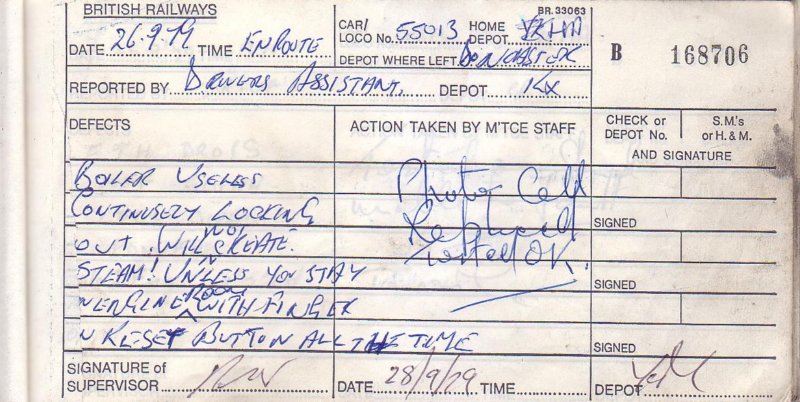 BRITISH RAILWAYS
BR. 33063
DATE 26.9.79 TIME ENROUTE
CAR/ LOCO No. 55013 HOME DEPOT
DEPOT WHERE LEFT DONCASTER
B 168706
REPORTED BY DRIVERS ASSISTANT. DEPOT KX
DEFECTS
ACTION TAKEN BY M'TCE STAFF
CHECK or DEPOT No.
S.M.'s or H. & M.
AND SIGNATURE
BOILER USELESS
CONTINUSELY LOCKING
OUT. WILL NOT CREATE
STEAM! UNLESS YOU STAY
N ENGINE ROOM WITH FINGER
N RESET BUTTON ALL THE TIME
Photo Cell
Replaced
Tested OK.
SIGNED
SIGNED
SIGNED
SIGNATURE OF SUPERVISOR
DATE 28/9/79 TIME
DEPOT